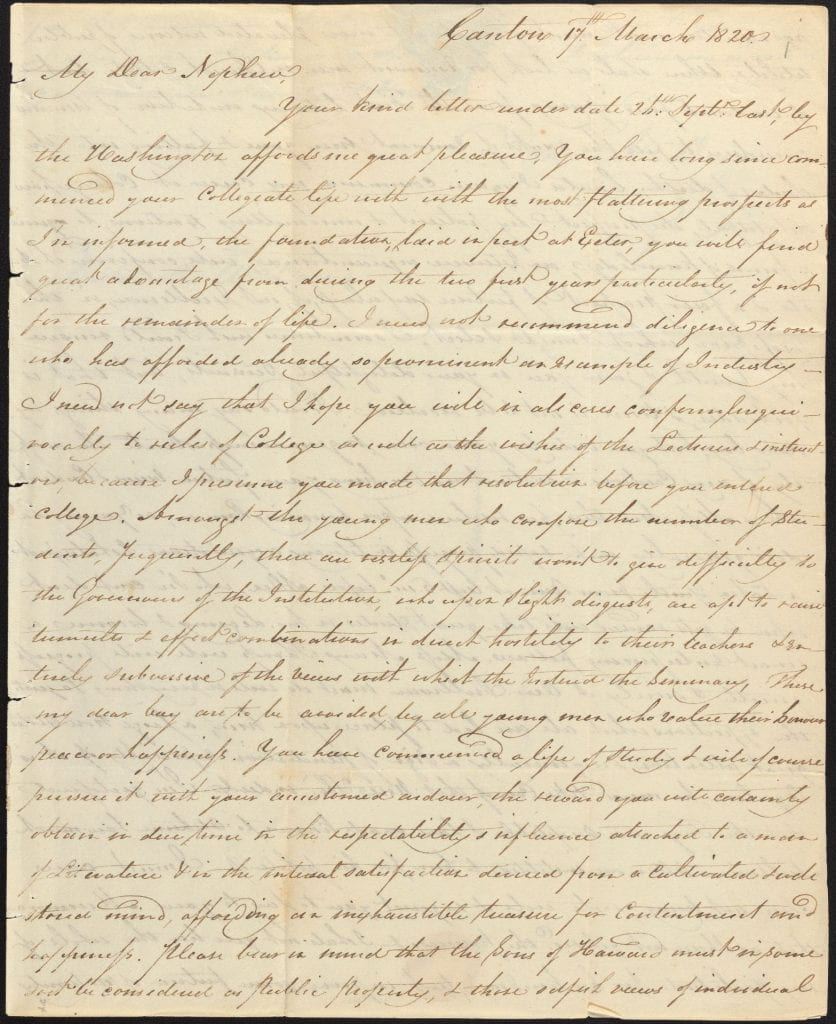 Canton 17th March 1820.
My Dear Nephew
Your kind letter under date 24th Septr. last, by
the Washington affords me great pleasure, You have long since com-
menced your Collegiate life with with the most flattering prospects as
I'm informed, the foundation, laid in part at Exeter, you will find
great advantage from during the two first years particularly, if not
for the remainder of life. I need not recommend diligence to one
who has afforded already so prominent an example of Industry —
I need not say that I hope you will in all cases conform unequi-
vocally to rules of College as well as the wishes of the Lecturers & instruct
ors, because I presume you made that resolution before you entered
College. Amongst the young men who compose the number of Stu-
dents, frequently, there are restless Spirits wont to give difficulty to
the Governours of the Institution, who upon slight disgusts, are apt to raise
tumults & effect combinations in direct hostility to their teachers & en-
tirely subversive of the views with which the entered the Seminary, These
my dear boy are to be avoided by all young men who value their honour
peace or happiness. You have commenced a life of Study & will of course
pursue it with your accustomed ardour, the reward you will certainly
obtain in due time in the respectability & influence attached to a man
of Literature & in the internal satisfaction derived from a cultivated & well
stored mind, affording an inexhaustible treasure for Contentment and
happiness. Please bear in mind that the Sons of Harvard must in some
sort be considered as Public Property, & those selfish views of individual